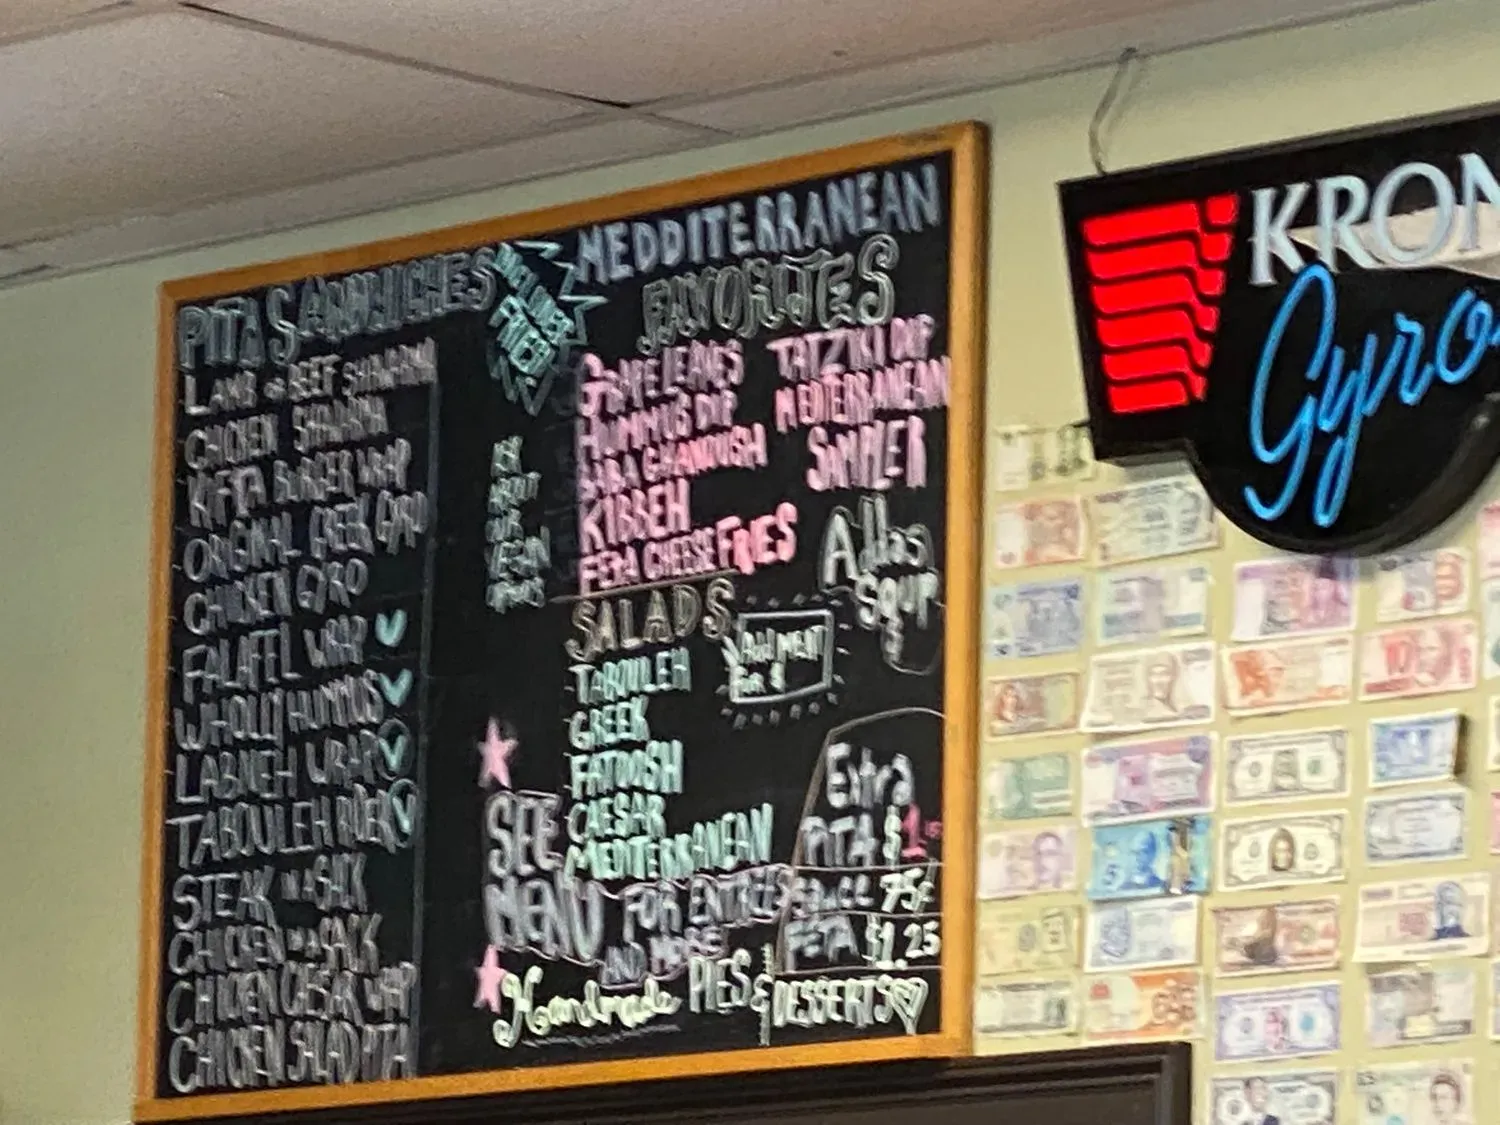 PITA SANDWICHES
LAMB or BEEF SHAWARMA
CHICKEN SHAWARMA
KEFTA BURGER WRAP
ORIGINAL GREEK GYRO
CHICKEN GYRO
FALAFEL WRAP
WHOLLY HUMMUS
LABNEH WRAP
TABOULEH
STEAK IN A SACK
CHICKEN IN A SACK
CHICKEN CAESAR WRAP
CHICKEN SALAD PITA
ASK
ABOUT
OUR
VEGAN
MEDDITERRANEAN
FAVORITES
GRAPE LEAVES
HUMMUS DIP
BABA GHANOUSH
KIBBEH
FETA CHEESE FRIES
TATZIKI DIP
MEDITERRANEAN
SAMPLER
SALADS
ADD MEAT
FOR $
TABOULEH
GREEK
FATOOSH
CAESAR
MEDITERRANEAN
SEE
MENU FOR ENTREES
AND MORE
Handmade PIES & DESSERTS
Soup
Extra
PITA $1.15
SAUCE 75¢
FETA $1.25
KRON
Gyro